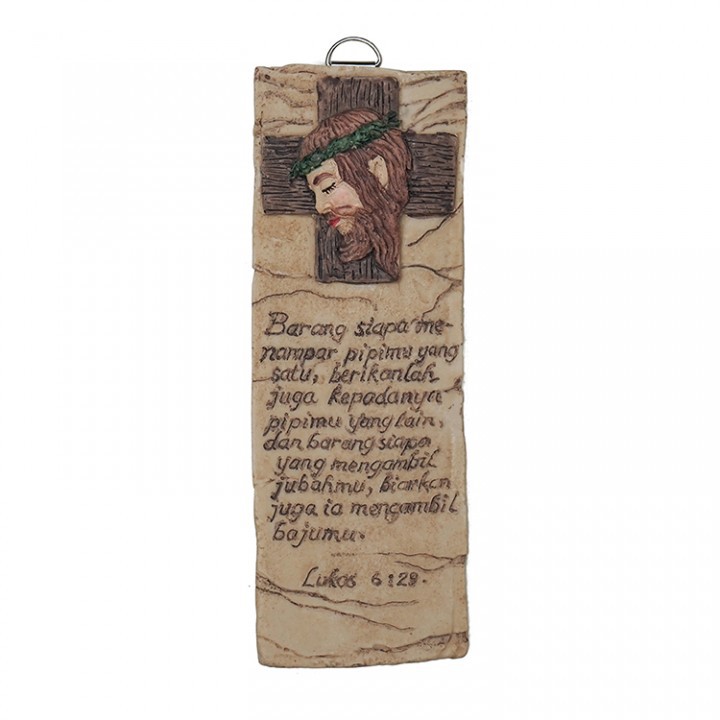 Barang siapa me-
nampar pipimu yang
satu, berikanlah
juga kepadanya
pipimu yang lain,
dan barang siapa
yang mengambil
jubahmu, biarkan
juga ia mengambil
bajumu.
Lukas 6:29.